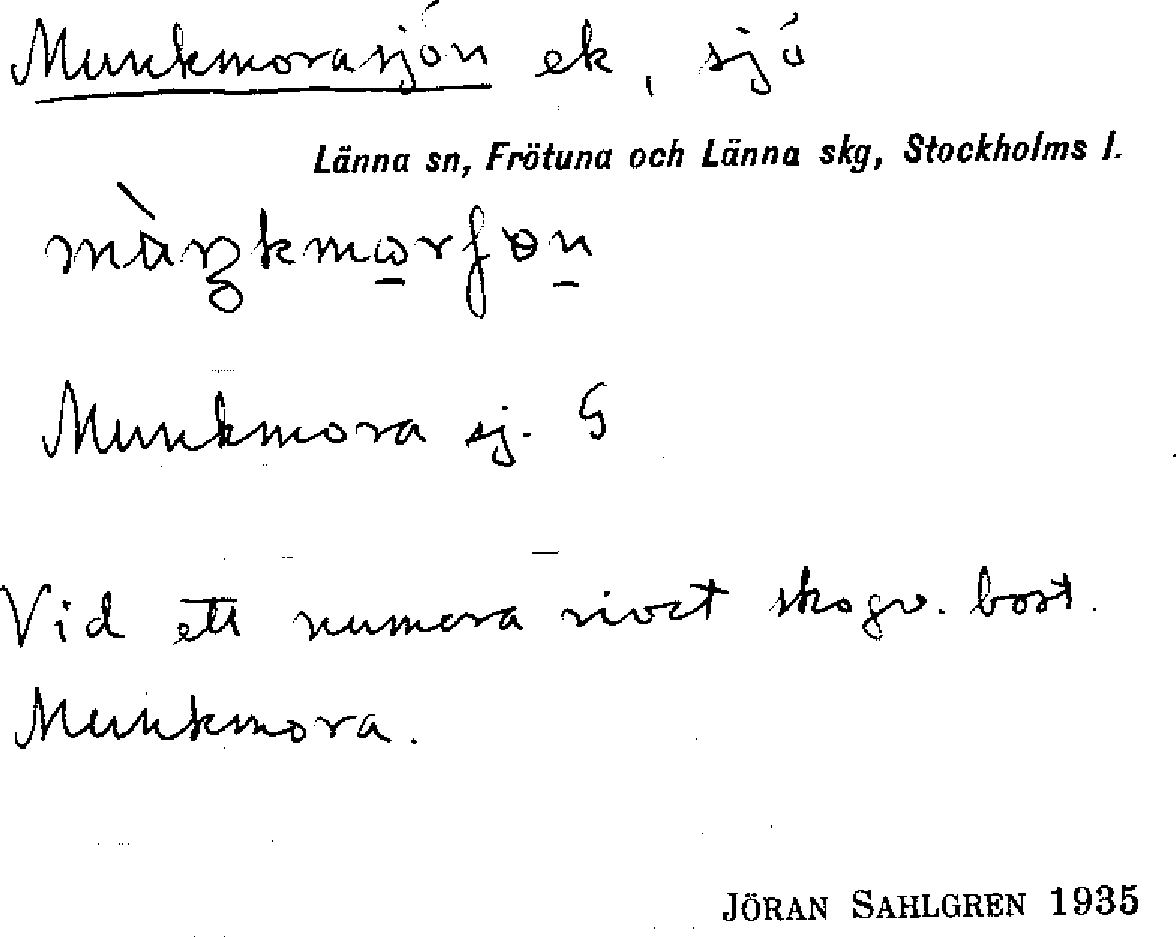 Munkmorasjön ek, sjö
Länna sn, Frötuna och Länna skg, Stockholms l.
Munkmora sj. G
Vid ett numera rivet skogv. bost.
Munkmora.
JÖRAN SAHLGREN 1935